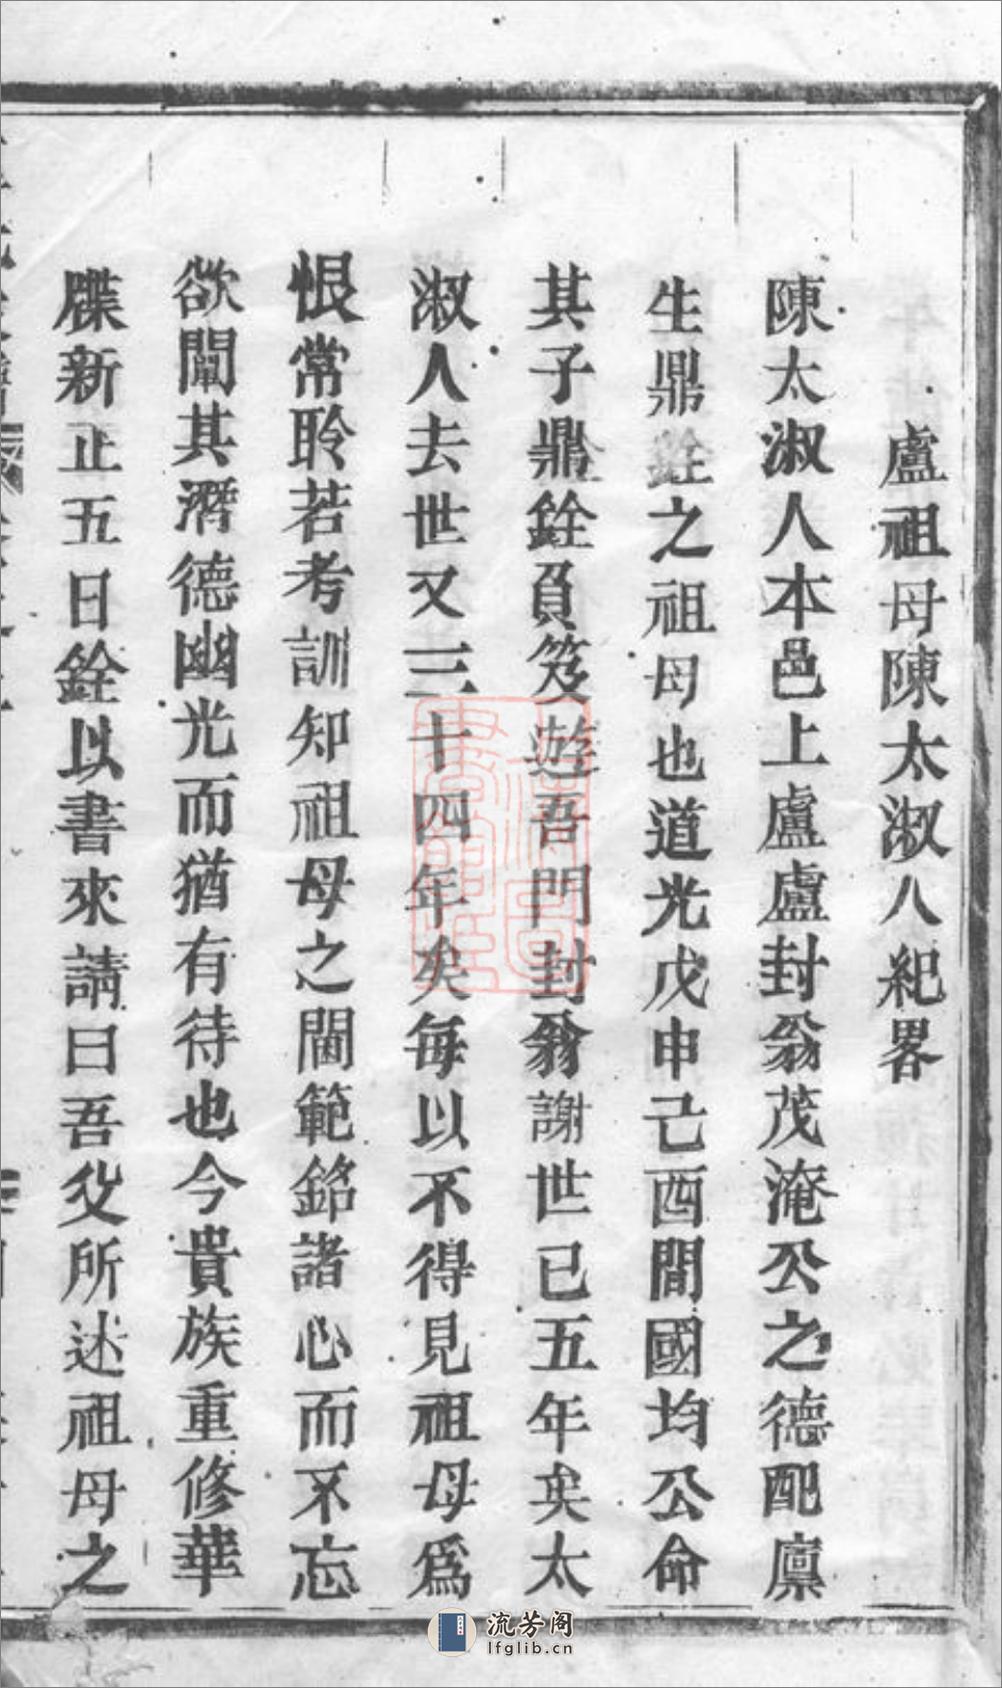 盧祖母陳太淑人紀畧
陳太淑人本邑上盧盧封翁茂淹公之德配廩
生鼎銓之祖母也道光戊申己酉間國均公命
其子鼎銓負笈遊吾門封翁謝世已五年矣太
淑人去世又三十四年矣每以不得見祖母為
恨常聆若考訓知祖母之閫範銘諸心而不忘
欲闡其潛德幽光而猶有待也今貴族重修華
牒新正五日銓以書來請曰吾父所述祖母之
流芳阁
lfglib.cn